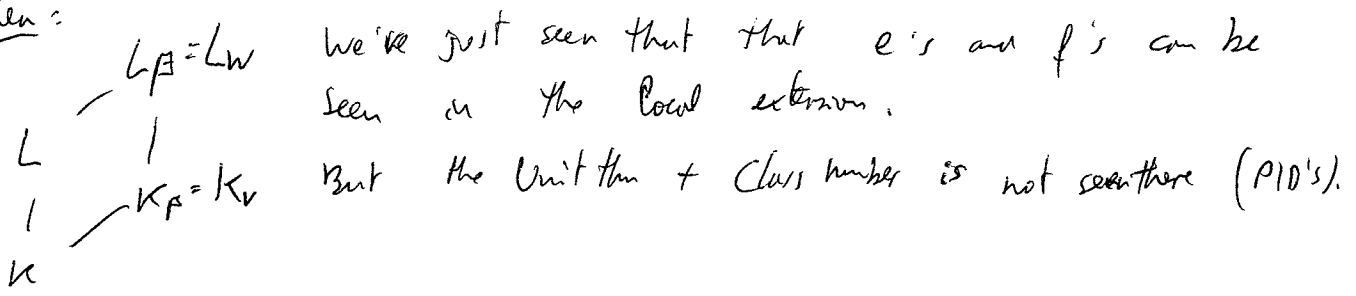 L_β = L_w We've just seen that that e's and f's can be
seen in the local extension.
L
K_p = K_v But the Unit thm + Class number is not seen there (PID's).
K